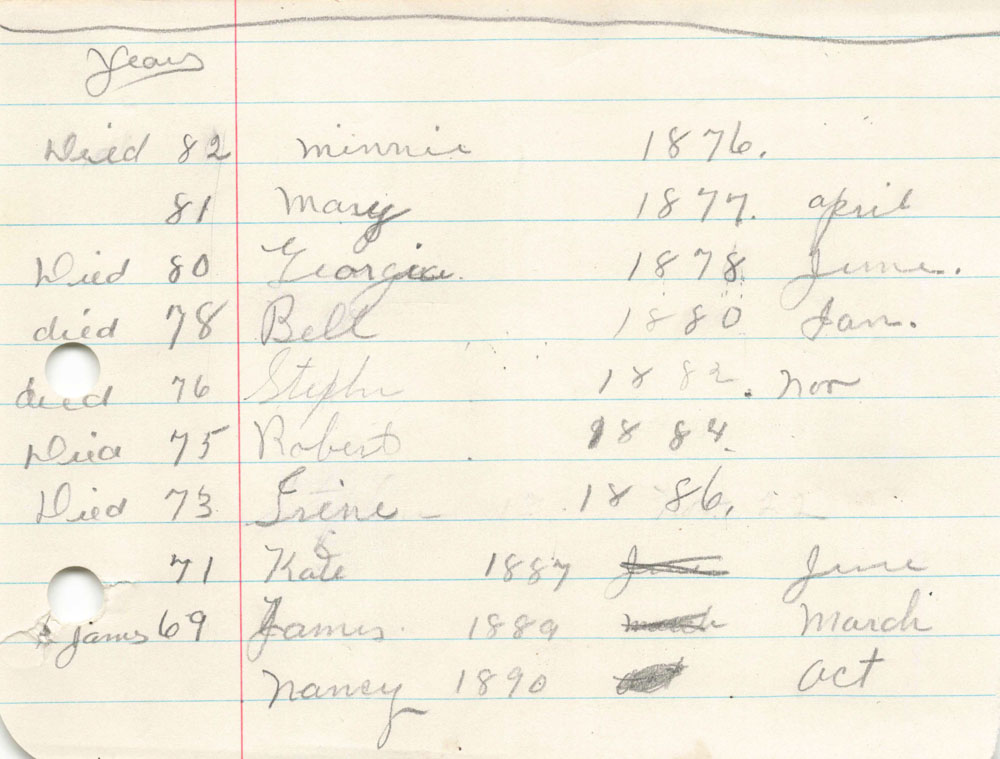 Years
Died 82 Minnie 1876.
81 Mary 1877. april
Died 80 Georgia. 1878. June.
died 78 Bell 1880 Jan.
died 76 Stephn 1882. Nov
Died 75 Robert 1884.
Died 73 Irine - 1886.
71 Kate 1887 June June
James 69 James. 1889 March March
Nancy 1890 Oct